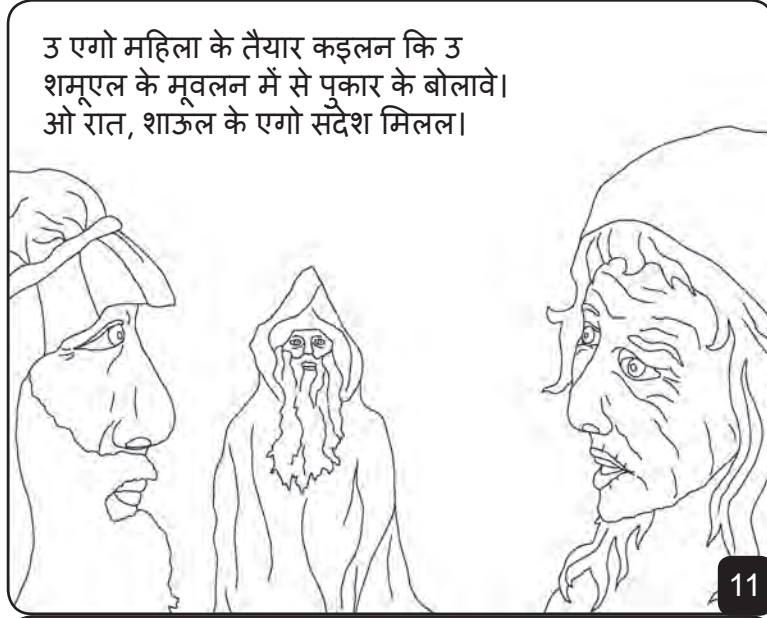 उ एगो महिला के तैयार कइलन कि उ
शमूएल के मूवलन में से पुकार के बोलावे।
ओ रात, शाऊल के एगो संदेश मिलल।
11